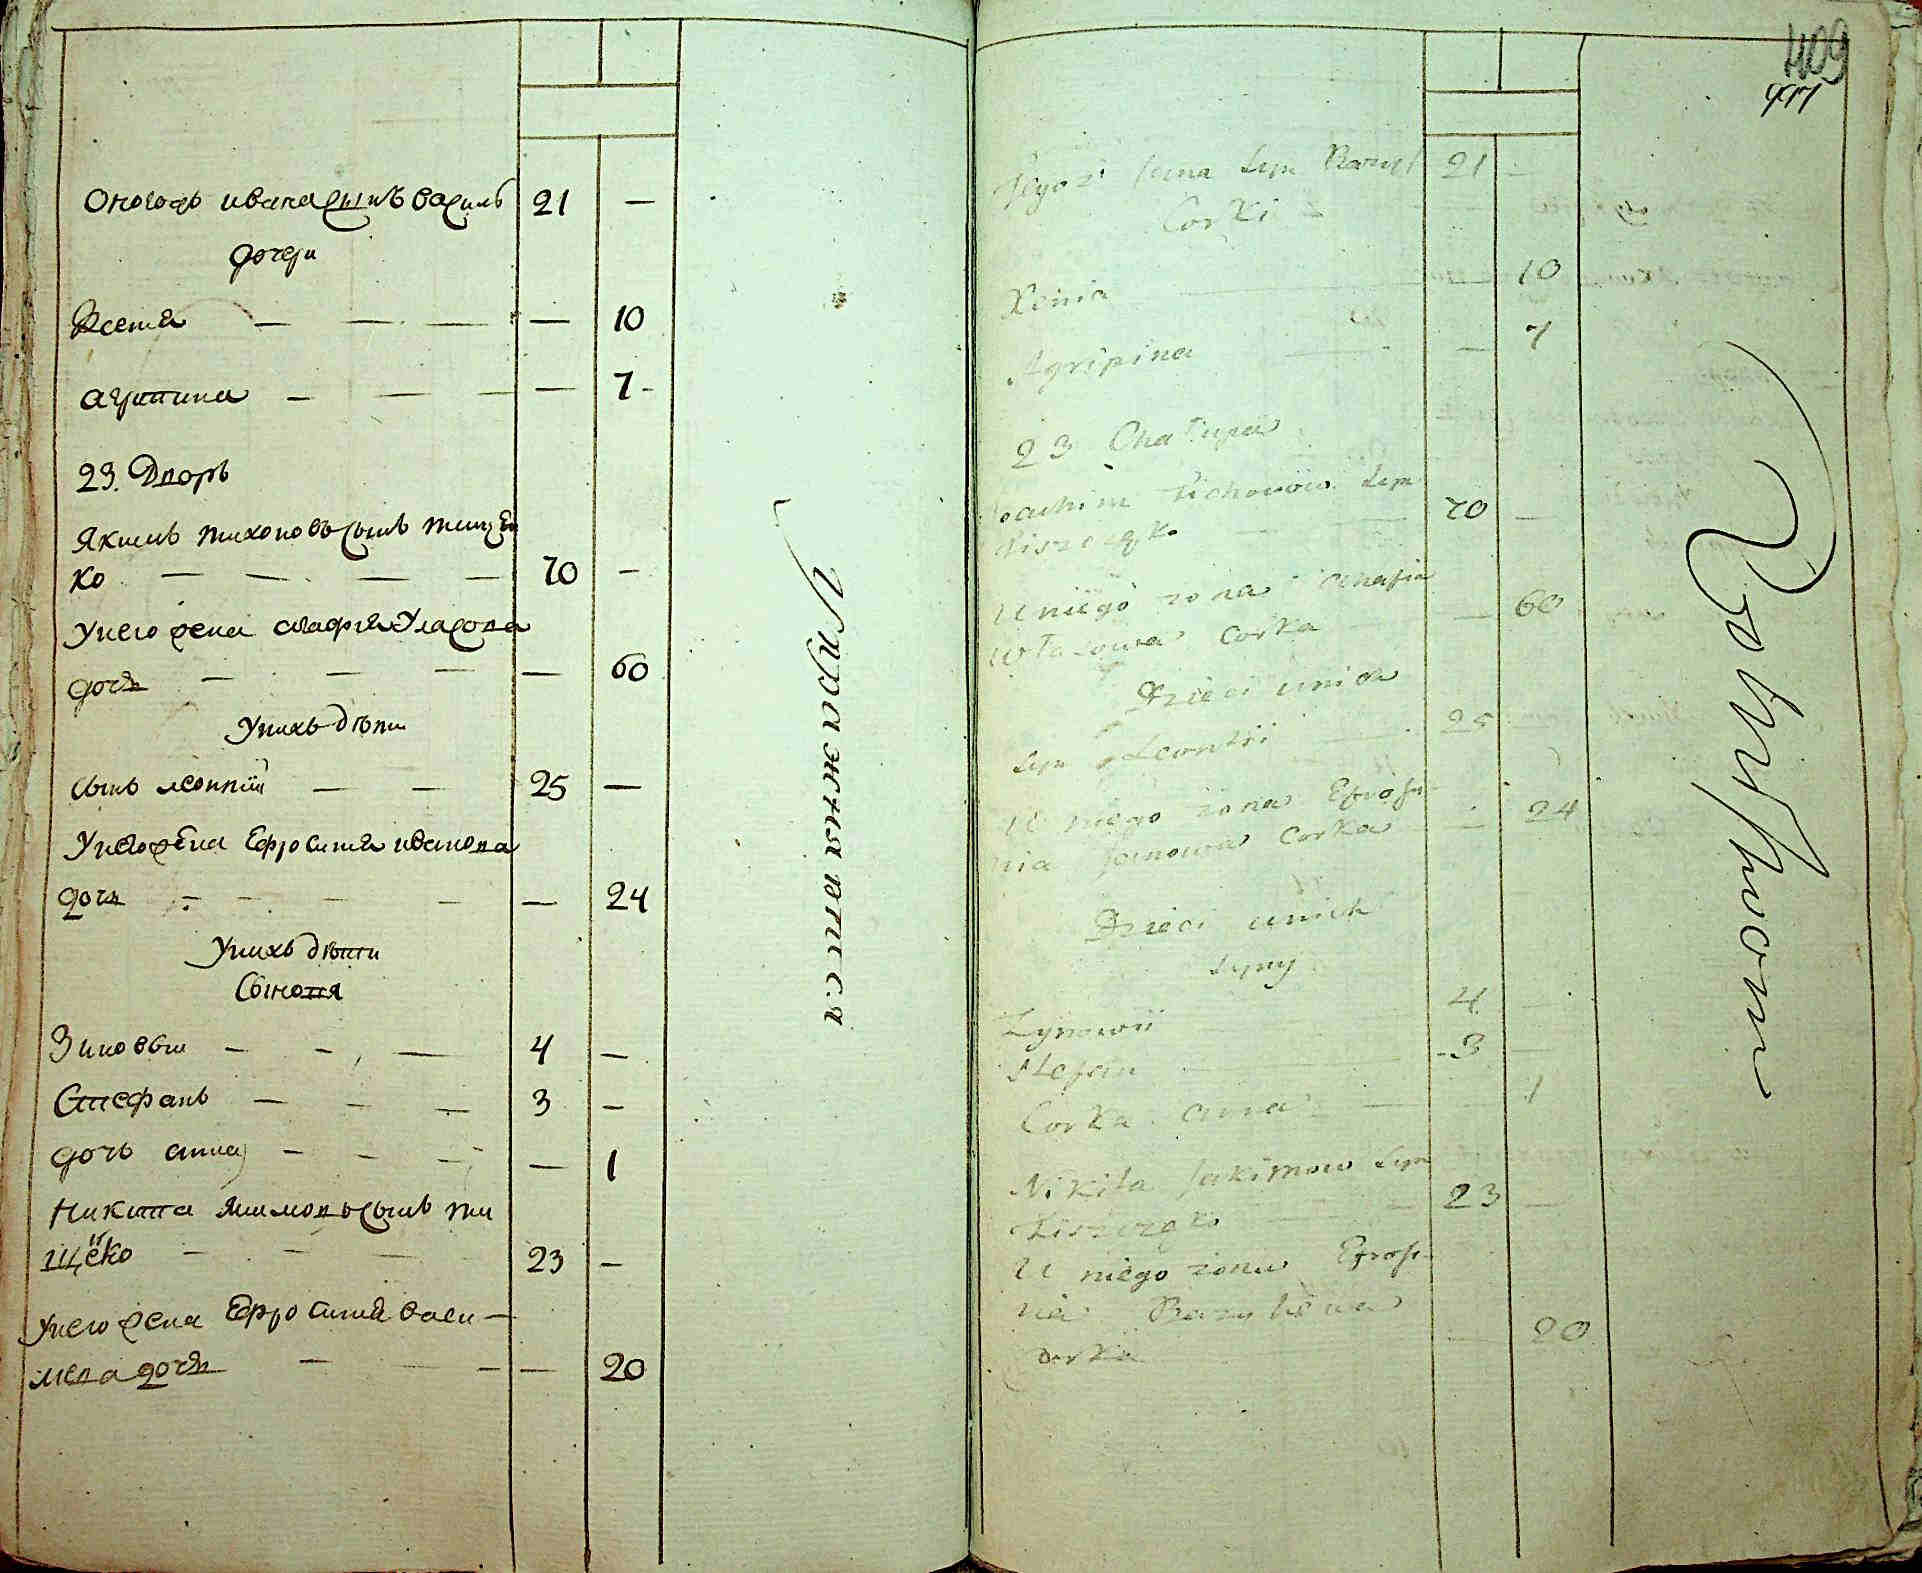 Оного дѣ ивана сынъ василь 21 —
дочери
Ксения — — — — 10
агрипина — — — — 7
23. Дворъ
Якимъ тихоновъ сынъ тище
ко — — — — 70 —
У него жена агафия Уласова
дочь — — — — 60
У нихъ дѣти
сынъ леонтий — — 25 —
У него жена Ефросиния иванова
дочь — — — — 24
У нихъ дѣти
Сыновя
Зиновѣи — — — 4 —
Стефанъ — — — 3 —
дочь анна — — — — 1
Никита Якимовъ сынъ ти
щеко — — — 23 —
У него жена Ефросиния васи-
лева дочь — — — 20
Приражняться
409
Tegoż Jana syn Bazyl 21 —
Corki
Xenia 10
Agripina — 7
23 Chałupa
Joachim Tichonow syn
Tiszczęko 70 —
U niego żona Ahafia
Własowa Corka — 60
Dzieci u nich
Syn Leontii 25
U niego żona Efrosi-
nia Janowa Corka — 24
Dzieci u nich
Syny
Zynowii 4 —
Stefan 3 —
Corka Anna — 1
Nikita Jakimow Syn
Tiszczęko 23 —
U niego żona Efrosi-
nia Bazylowa
Corka — 20